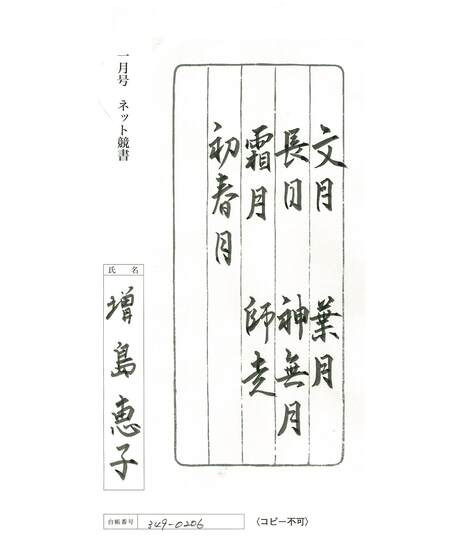 文月　葉月
長日　神無月
霜月　師走
初春月
一月号　ネット競書
氏　名
増島恵子
台帳番号　349-0206
（コピー不可）